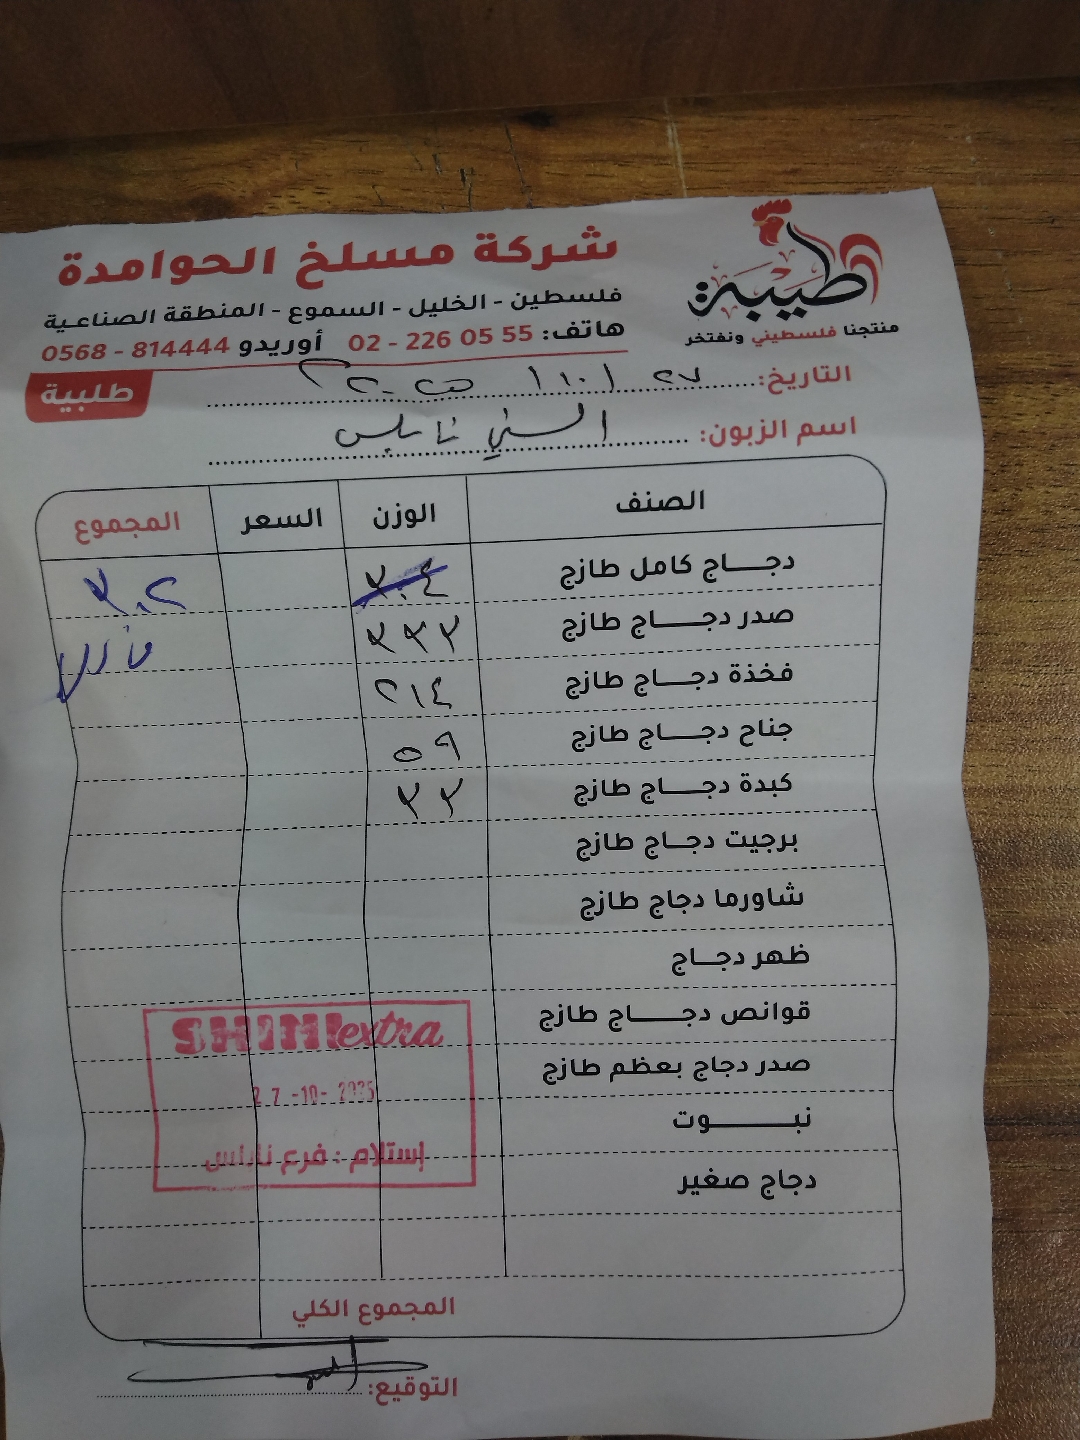 شركة مسلخ الحوامدة
فلسطين - الخليل - السموع - المنطقة الصناعية
هاتف: 02 - 226 05 55 أوريدو 0568 - 814444
طيبة
منتجنا فلسطيني ونفتخر
طلبية
التاريخ: ٢٧ / ١٠ / ٢٠٢٥
اسم الزبون: السني نابلس
الصنف الوزن السعر المجموع
دجاج كامل طازج ٢٠٤ ٢٠٢
صدر دجاج طازج ٢٣٢
فخذة دجاج طازج ٢١٤
جناح دجاج طازج ٥٩
كبدة دجاج طازج ٢٢
برجيت دجاج طازج
شاورما دجاج طازج
ظهر دجاج
قوانص دجاج طازج
صدر دجاج بعظم طازج
نبوت
دجاج صغير
SHINI extra
27-10-2025
إستلام : فرع نابلس
المجموع الكلي
التوقيع: